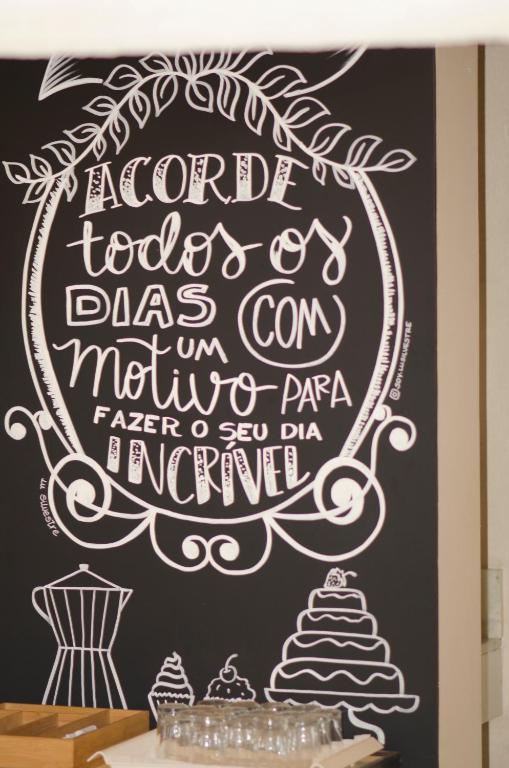 ACORDE
todos os
DIAS COM
UM
Motivo PARA
FAZER O SEU DIA
INCRÍVEL
@SOY.LUSILVESTRE